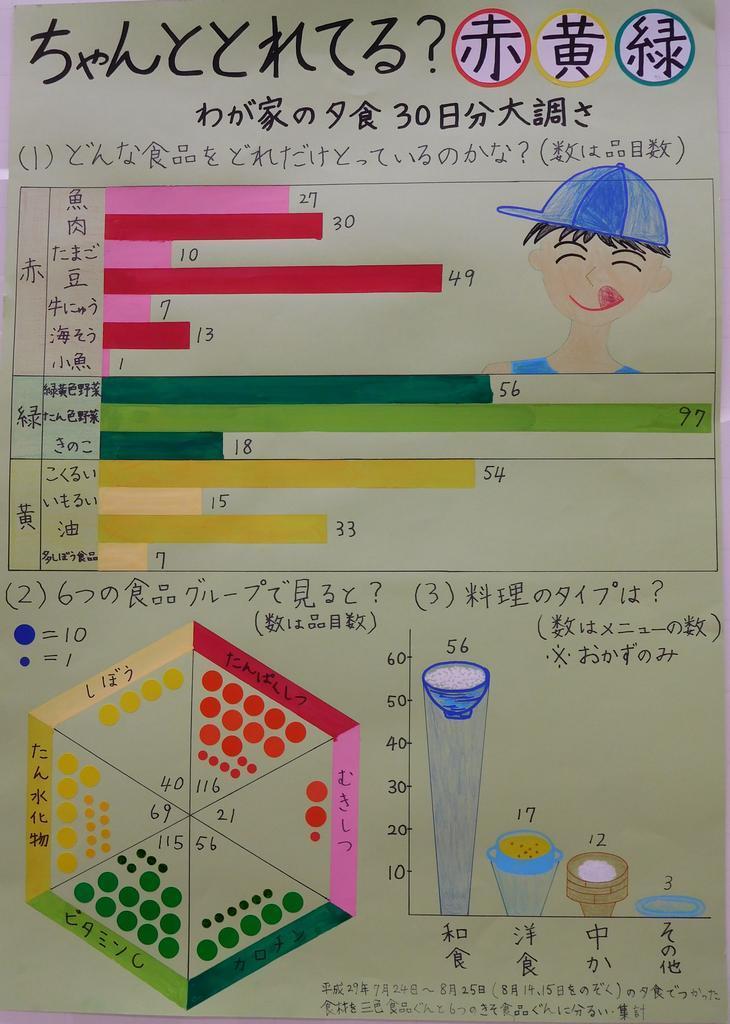 ちゃんととれてる？赤黄緑
わが家の夕食30日分大調さ
(1) どんな食品をどれだけとっているのかな？(数は品目数)
赤
魚 27
肉 30
たまご 10
豆 49
牛にゅう 7
海そう 13
小魚 1
緑
緑黄色野菜 56
たん色野菜 97
きのこ 18
黄
こくるい 54
いもるい 15
油 33
多しぼう食品 7
(2) 6つの食品グループで見ると？
(数は品目数)
●=10
●=1
しぼう
たんぱくしつ
むきしつ
カロチン
ビタミンC
たん水化物
40 116
69 21
115 56
(3) 料理のタイプは？
(数はメニューの数)
※おかずのみ
60
50
40
30
20
10
56
17
12
3
和食
洋食
中か
その他
平成29年7月24日〜8月25日(8月14、15日をのぞく)の夕食でつかった
食材を三色食品ぐんと6つのきそ食品ぐんに分るい・集計